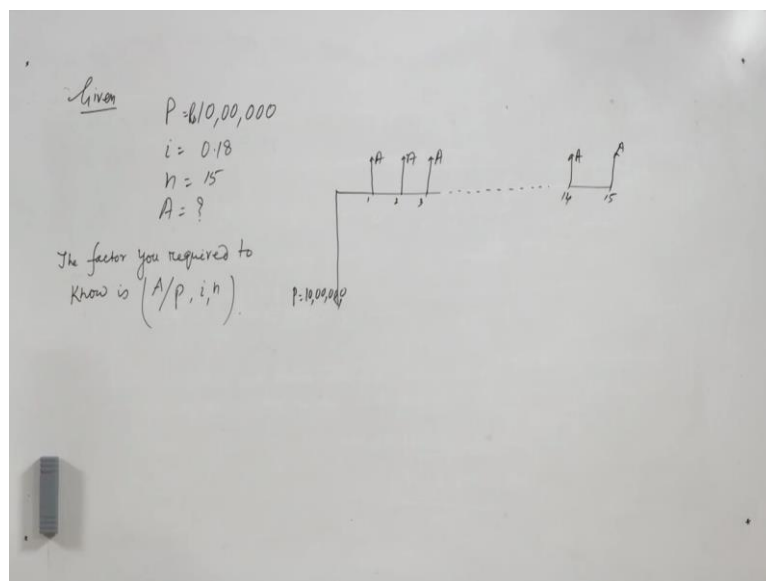 Given
P = ₨10,00,000
i = 0.18
n = 15
A = ?
The factor you required to
know is (A/P, i, n).
A A A A A
1 2 3 14 15
P=10,00,000